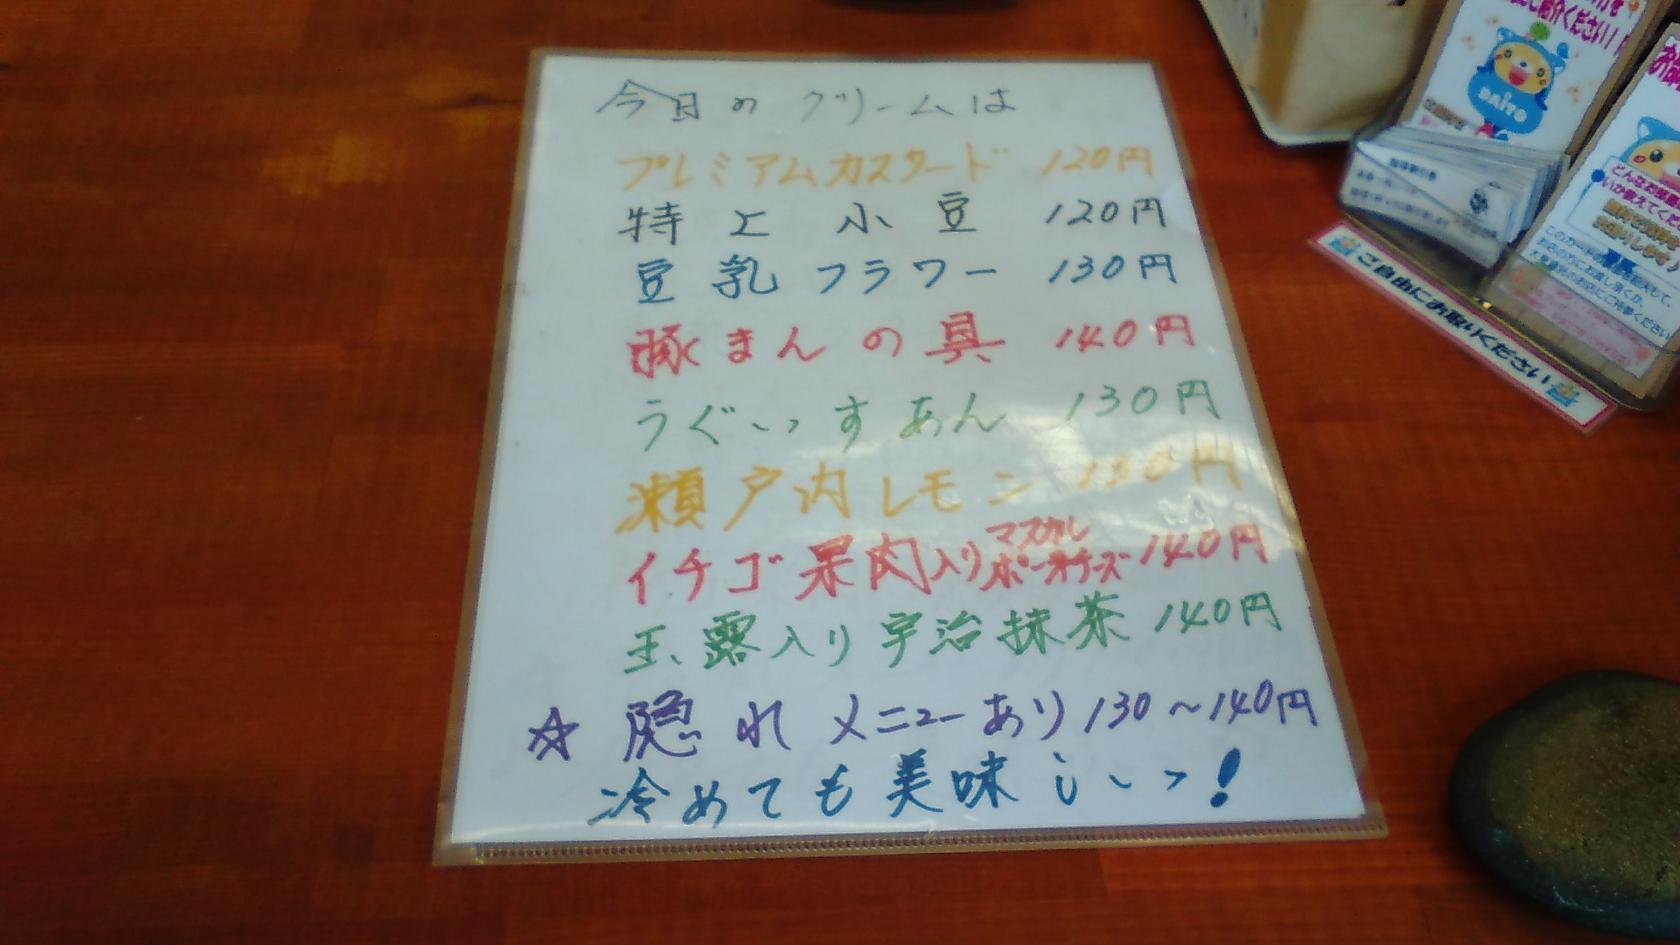 今日のクリームは
プレミアムカスタード 120円
特上小豆 120円
豆乳フラワー 130円
豚まんの具 140円
うぐいすあん 130円
瀬戸内レモン 130円
イチゴ果肉入りマスカルポーネチーズ 140円
玉露入り宇治抹茶 140円
☆隠れメニューあり 130～140円
冷めても美味しい！
ご紹介ください！
DAITO
ご自由にお取りください